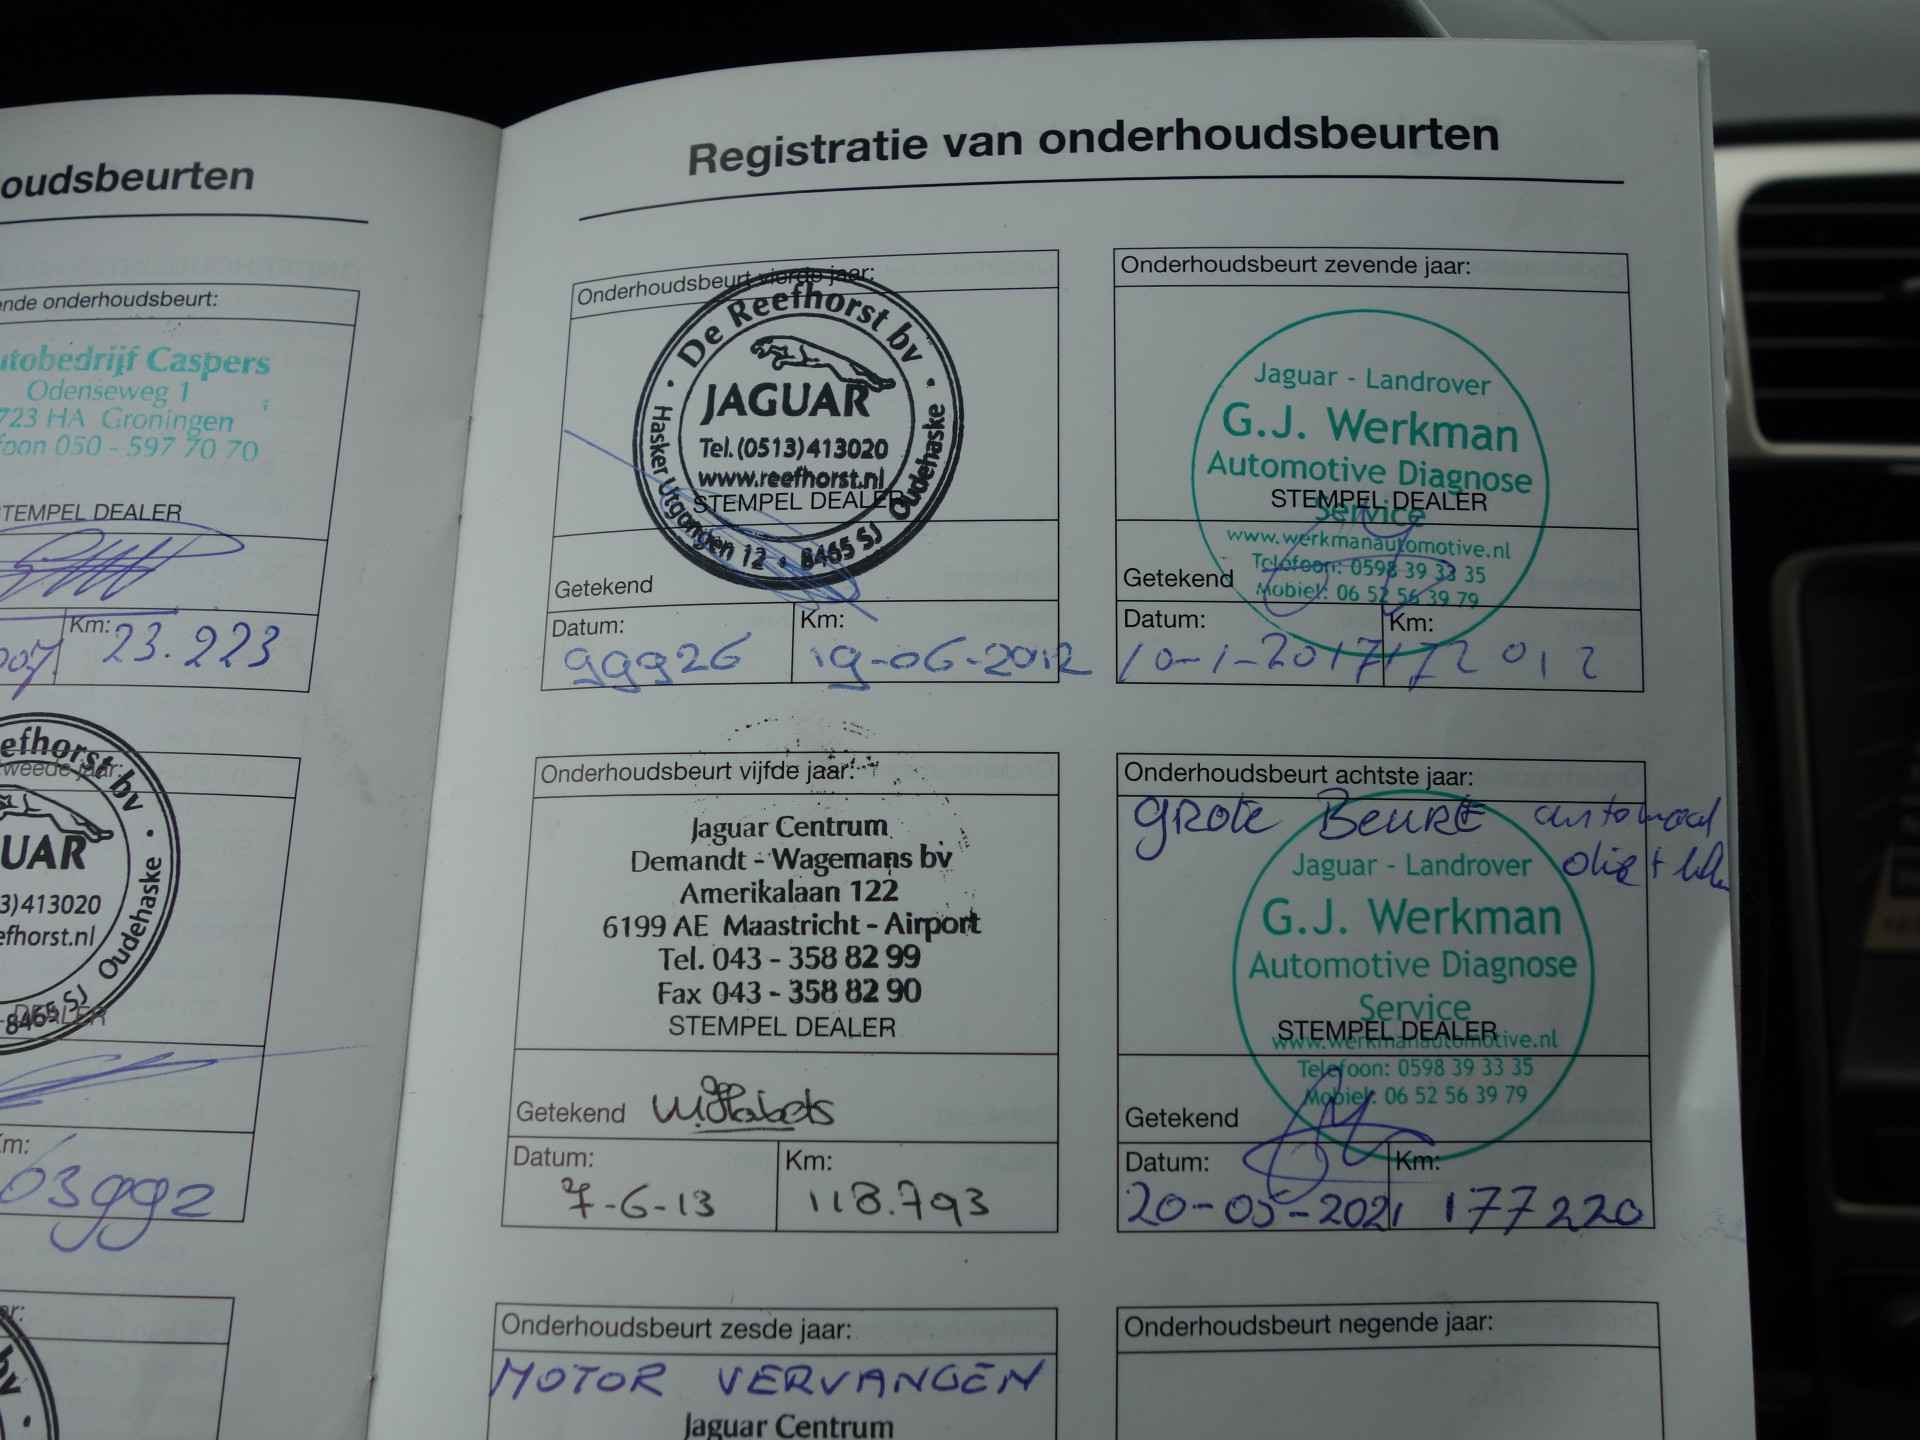 oudsbeurten
ende onderhoudsbeurt:
utobedrijf Caspers
Odenseweg 1
723 HA Groningen
foon 050 - 597 70 70
STEMPEL DEALER
Km:
23.223
eefhorst bv
tweede jaar:
UAR
3)413020
efhorst.nl
8465 SJ Oudehaske
DEALER
Km:
63992
bv
Registratie van onderhoudsbeurten
Onderhoudsbeurt vierde jaar:
De Reefhorst bv
JAGUAR
Tel.(0513)413020
www.reefhorst.nl
Hasker Utgongen 12 • 8465 SJ Oudehaske
STEMPEL DEALER
Getekend
Datum:
Km:
99926
19-06-2012
Onderhoudsbeurt vijfde jaar:
Jaguar Centrum
Demandt - Wagemans bv
Amerikalaan 122
6199 AE Maastricht - Airport
Tel. 043 - 358 82 99
Fax 043 - 358 82 90
STEMPEL DEALER
Getekend
Datum:
Km:
7-6-13
118.793
Onderhoudsbeurt zesde jaar:
MOTOR VERVANGEN
Jaguar Centrum
Onderhoudsbeurt zevende jaar:
Jaguar - Landrover
G.J. Werkman
Automotive Diagnose
Service
STEMPEL DEALER
www.werkmanautomotive.nl
Telefoon: 0598 39 33 35
Mobiel: 06 52 56 39 79
Getekend
Datum:
Km:
10-1-2017
172012
Onderhoudsbeurt achtste jaar:
GROTE BEURT automaat
olie +
Jaguar - Landrover
G.J. Werkman
Automotive Diagnose
Service
STEMPEL DEALER
www.werkmanautomotive.nl
Telefoon: 0598 39 33 35
Mobiel: 06 52 56 39 79
Getekend
Datum:
Km:
20-05-2021
177220
Onderhoudsbeurt negende jaar: